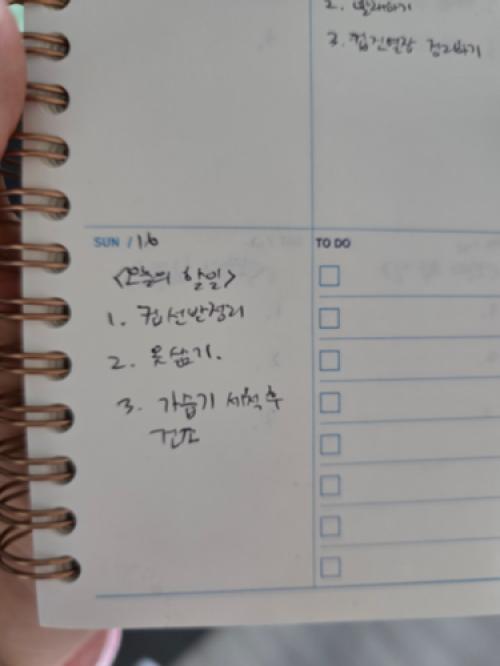 2. 빨래하기
3. 컵진열장 정리하기
SUN / 16
TO DO
<오늘의 할일>
1. 컵선반정리
2. 옷삶기.
3. 가습기 세척 후
건조